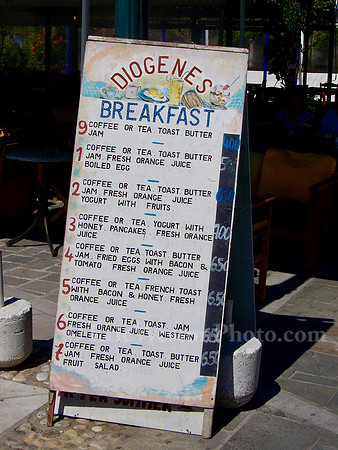 DIOGENES
BREAKFAST
9 COFFEE OR TEA. TOAST BUTTER
JAM
1 COFFEE OR TEA. TOAST BUTTER
JAM. FRESH ORANGE JUICE
BOILED EGG
2 COFFEE OR TEA. TOAST BUTTER
JAM. FRESH ORANGE JUICE
YOGURT WITH FRUITS
3 COFFEE OR TEA. YOGURT WITH
HONEY. PANCAKES. FRESH ORANGE
JUICE
4 COFFEE OR TEA. TOAST BUTTER
JAM. FRIED EGGS WITH BACON &
TOMATO. FRESH ORANGE JUICE
6.50
5 COFFEE OR TEA. FRENCH TOAST
WITH BACON & HONEY. FRESH
ORANGE JUICE
6.50
6 COFFEE OR TEA. TOAST JAM
FRESH ORANGE JUICE. WESTERN
OMELETTE
6.50
7 COFFEE OR TEA. TOAST BUTTER
JAM. FRESH ORANGE JUICE
FRUIT SALAD
6.50